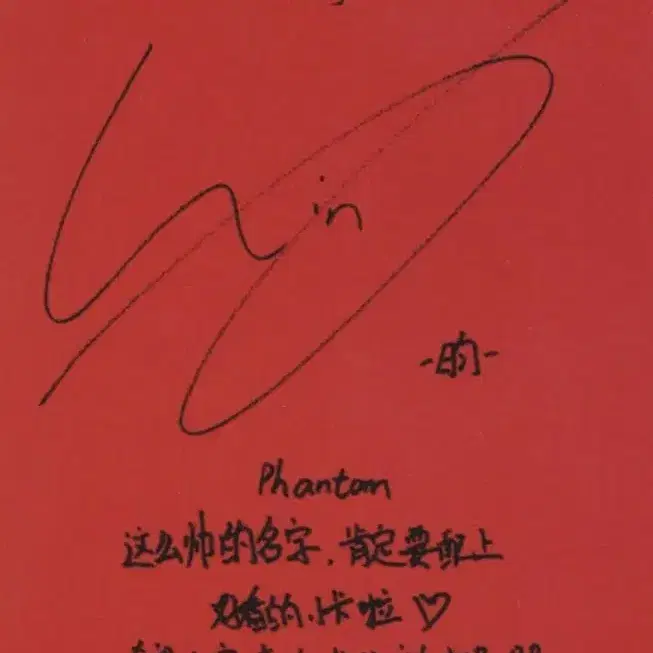 Win
-昀-
Phantom
这么帅的名字,肯定要配上
好看的小卡啦♡